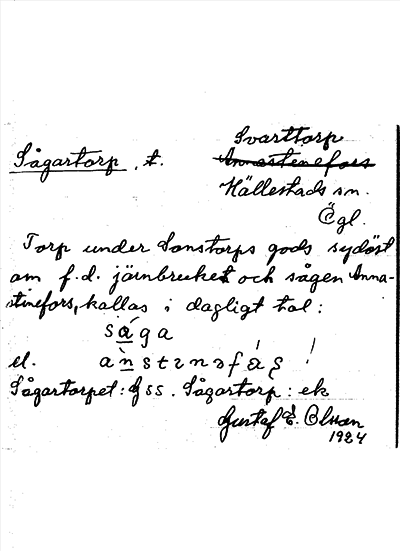 Svarttorp
Sågartorp, t. Annastenefors
Hällestads sn.
Ögl.
Torp under Sonstorps gods sydöst
om f.d. järnbruket och sågen Anna-
stinefors, kallas i dagligt tal:
såga
el. anstınəfås
Sågartorpet: Gss. Sågartorp: ek
Gustaf E. Olsson
1924